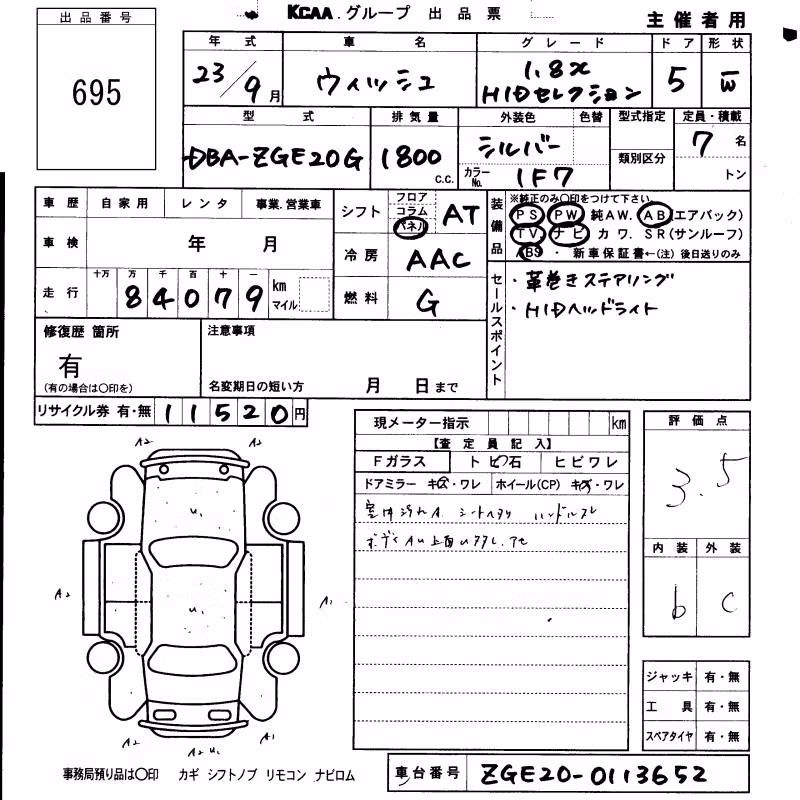 KCAA グループ 出品票
主催者用
出品番号
695
年式 車名 グレード ドア 形状
23/9月 ウィッシュ 1.8X HIDセレクション 5 W
型式 排気量 外装色 色替 型式指定 定員・積載
DBA-ZGE20G 1800 c.c. シルバー 7 名
カラーNo. 1F7 類別区分 トン
車歴 自家用 レンタ 事業.営業車
車検 年 月
走行 十万 万 千 百 十 一
84079 km マイル
シフト フロア コラム パネル AT
冷房 AAC
燃料 G
装備品 ※純正のみ〇印をつけて下さい
PS PW 純AW. AB(エアバック)
TV ナビ カワ. SR(サンルーフ)
ABS ・ 新車保証書←(注) 後日送りのみ
セールスポイント
・革巻きステアリング
・HIDヘッドライト
修復歴 箇所
有
(有の場合は〇印を)
注意事項
名変期日の短い方 月 日まで
リサイクル券 有・無 11520円
現メーター指示 km
【査定員記入】
Fガラス トビ石 ヒビワレ
ドアミラー キズ・ワレ ホイール(CP) キズ・ワレ
評価点
3.5
内装 外装
b C
A2 A2
U1
U1
A2 A1
A2 A2U1 A2
ジャッキ 有・無
工具 有・無
スペアタイヤ 有・無
事務局預り品は〇印 カギ シフトノブ リモコン ナビロム
車台番号 ZGE20-0113652